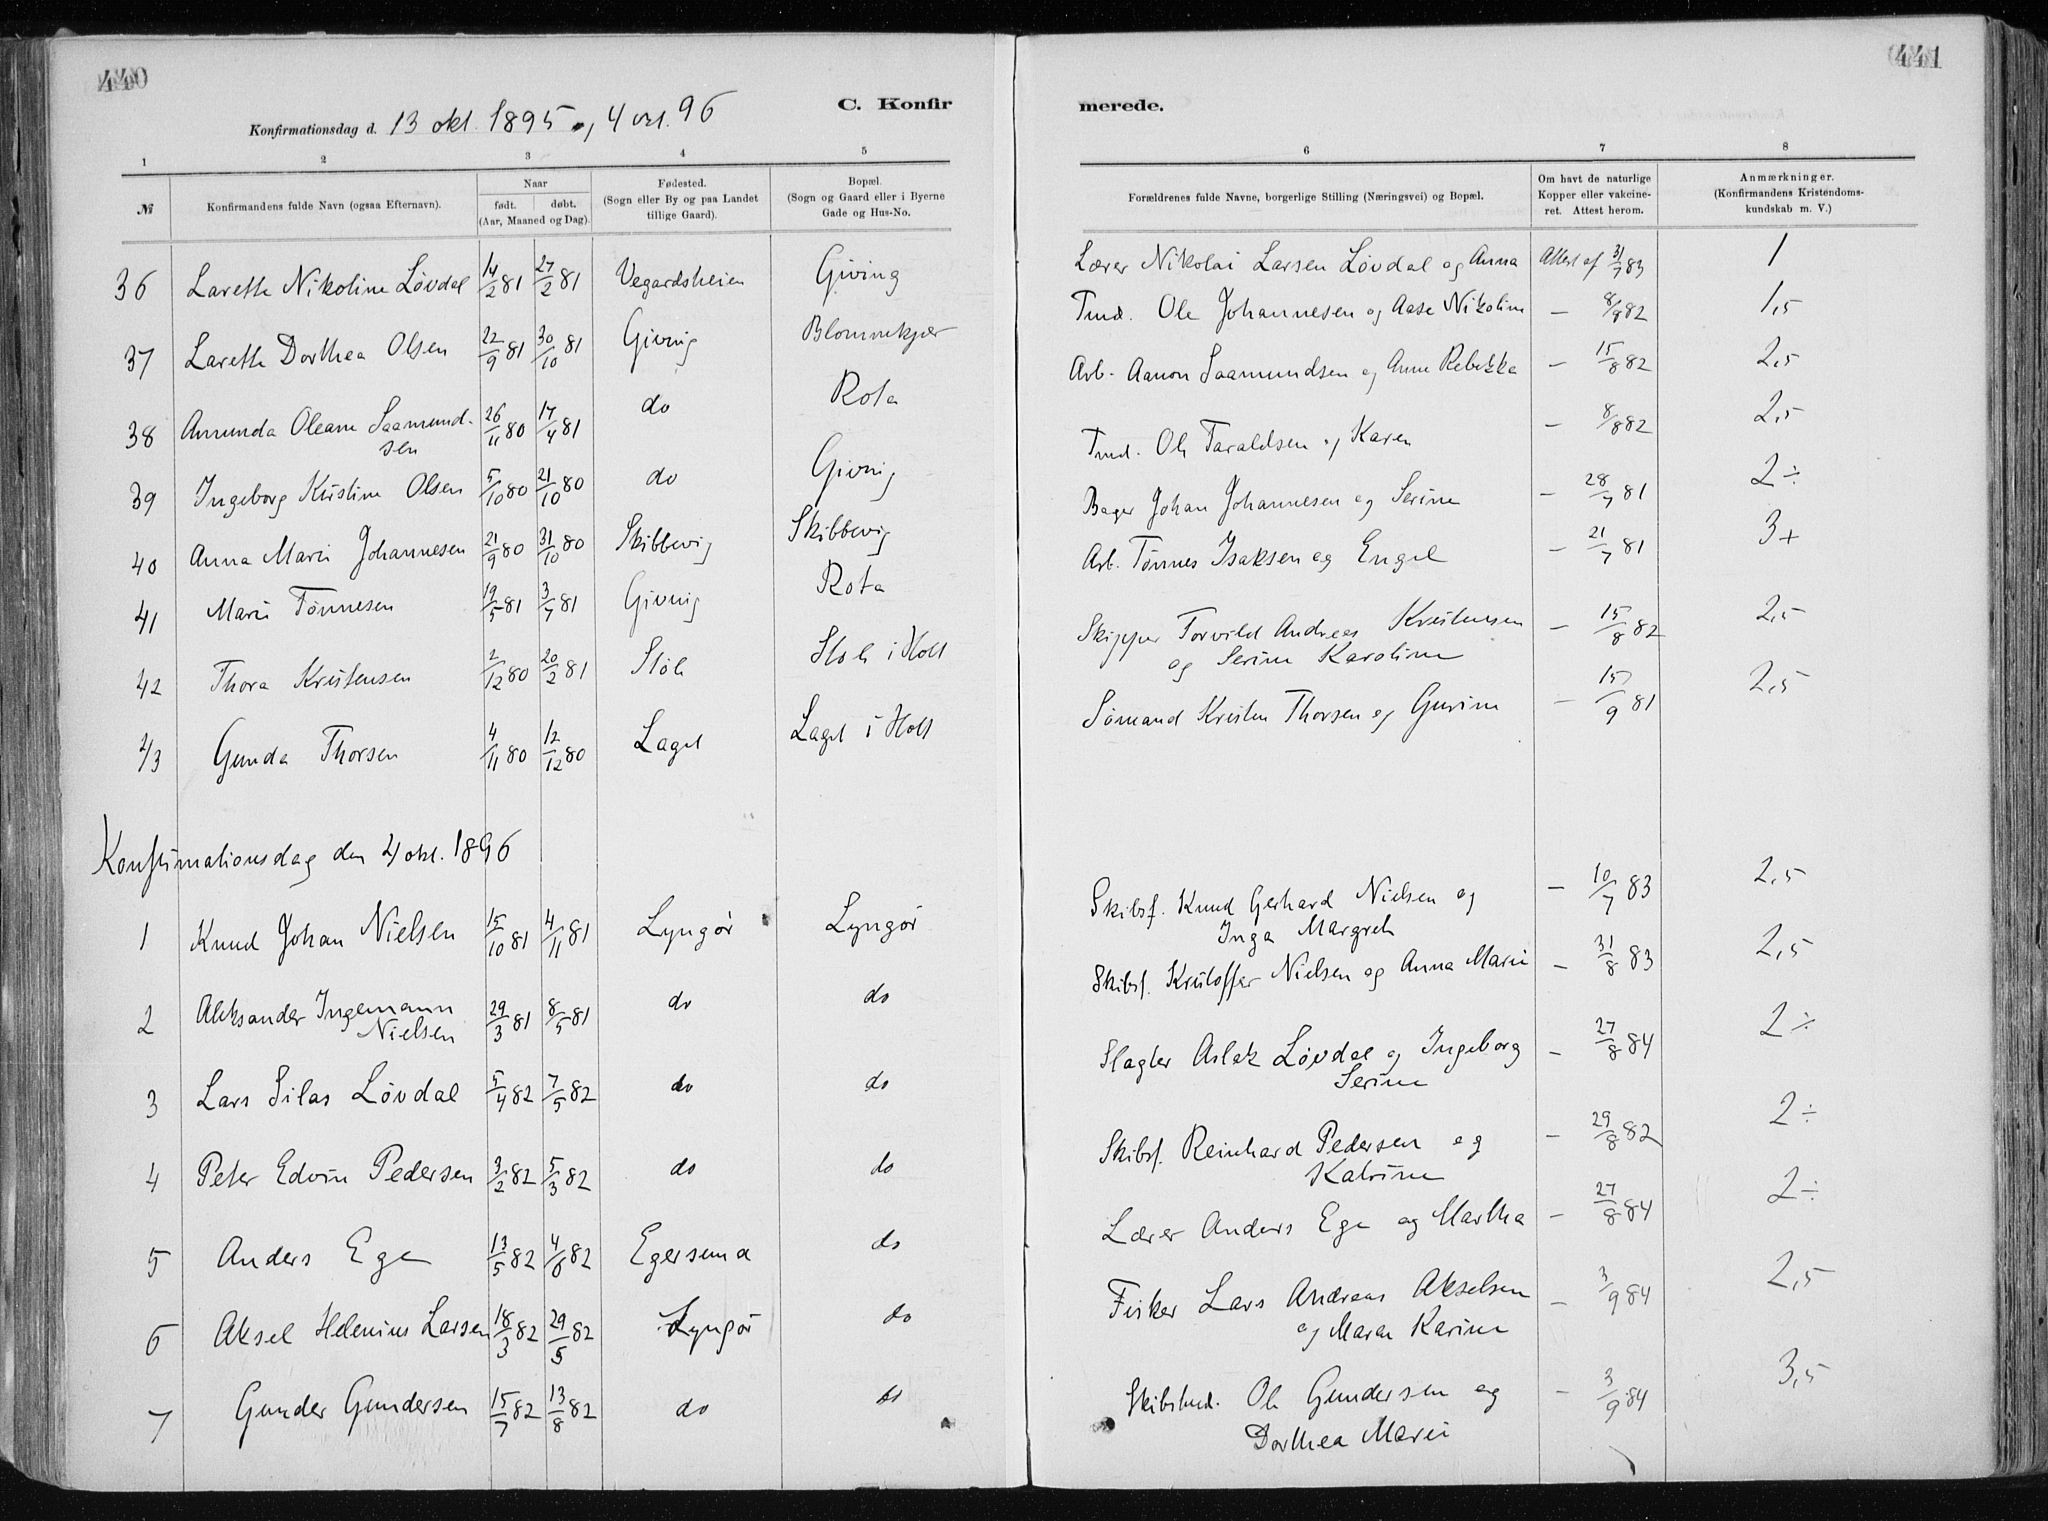 440
441
C. Konfir
merede.
Konfirmationsdag d. 13 okt. 1895 og 4 okt. 96
1 2 3 4 5 6 7 8
№
Konfirmandens fulde Navn (ogsaa Efternavn).
Naar
født. døbt.
(Aar, Maaned og Dag).
Fødested.
(Sogn eller By og paa Landet
tillige Gaard).
Bopæl.
(Sogn og Gaard eller i Byerne
Gade og Hus-No.
Forældrenes fulde Navne, borgerlige Stilling (Næringsvei) og Bopæl.
Om havt de naturlige
Kopper eller vakcine-
ret. Attest herom.
Anmærkninger.
(Konfirmandens Kristendoms-
kundskab m. V.)
36 Larethe Nikoline Løvdal 14/2 81 27/2 81 Vegardsheien Giving Lærer Nikolai Larsen Løvdal og Anna Attest af 31/7 83 1
37 Larethe Dorthea Olsen 22/9 81 30/10 81 Giving Blomnekjær Tmd. Ole Johannesen og Aase Nikoline — 8/9 82 1,5
38 Amunda Oleane Saamund-
sen 26/11 80 17/4 81 do Rota Arb. Aanon Saamundsen og Anne Rebekka — 15/8 82 2,5
39 Ingeborg Kristine Olsen 5/10 80 21/10 80 do Giving Tmd. Ole Taraldsen og Karen — 8/8 82 2,5
40 Anna Marie Johannesen 21/9 80 31/10 80 Skibbevig Skibbevig Bager Johan Johannesen og Serine — 28/7 81 2 ÷
41 Marie Tønnesen 19/5 81 3/7 81 Giving Rota Arb. Tønnes Isaksen og Engel — 21/7 81 3+
42 Thora Kristensen 2/12 80 20/2 81 Støle Støle i Holt Skipper Torvild Andreas Kristensen
og Serine Karoline — 15/8 82 2,5
43 Gunda Thorsen 4/11 80 12/12 80 Laget Laget i Holt Sømand Kristen Thorsen og Gurine — 15/9 81 2,5
Konfirmationsdag den 4 okt. 1896
1 Knud Johan Nielsen 15/10 81 4/11 81 Lyngør Lyngør Skibsf. Knud Gerhard Nielsen og
Inga Margreth — 10/7 83 2,5
2 Aleksander Ingemann
Nielsen 29/3 81 8/5 81 do do Skibsf. Kristoffer Nielsen og Anna Marie — 31/8 83 2,5
3 Lars Silas Løvdal 5/4 82 7/5 82 do do Slagter Aslak Løvdal og Ingeborg
Serine — 27/8 84 2 ÷
4 Peter Edvin Pedersen 3/2 82 5/3 82 do do Skibsf. Reinhard Pedersen og
Katrine — 29/8 82 2 ÷
5 Anders Ege 13/5 82 4/6 82 Egersund do Lærer Anders Ege og Martha — 27/8 84 2 ÷
6 Aksel Helenius Larsen 18/3 82 29/5 82 Lyngør do Fisker Lars Andreas Akselsen
og Maren Karine — 3/9 84 2,5
7 Gunder Gundersen 15/7 82 13/8 82 do do Skibstmd. Ole Gundersen og
Dorthea Marie — 3/9 84 3,5